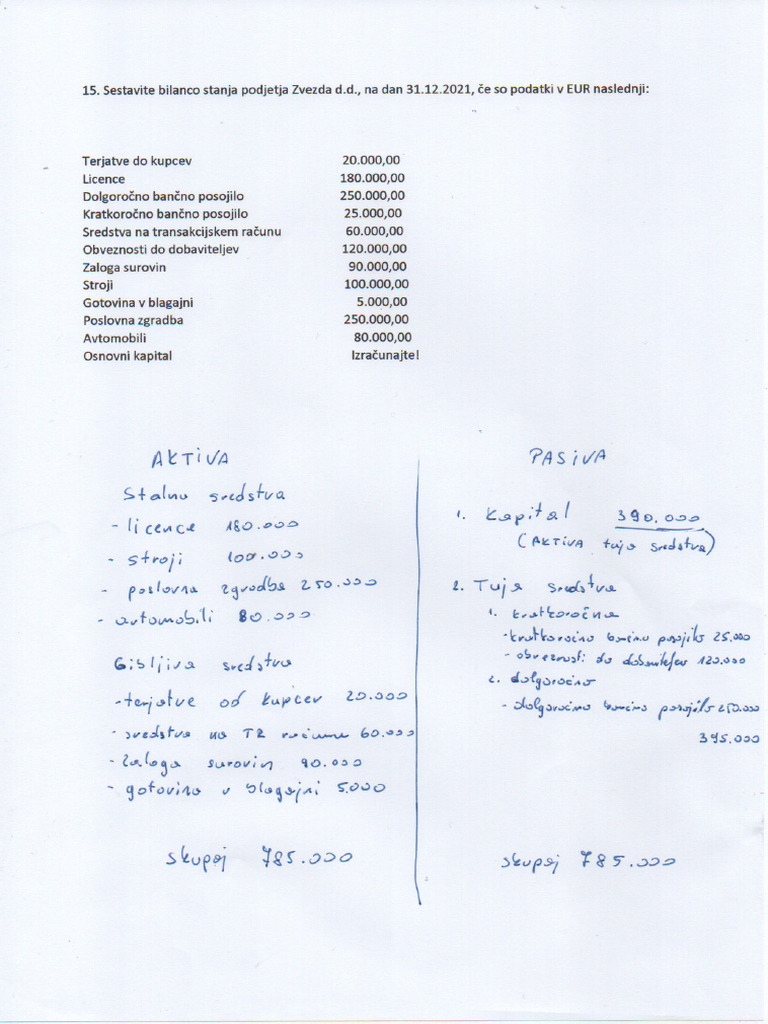 15. Sestavite bilanco stanja podjetja Zvezda d.d., na dan 31.12.2021, če so podatki v EUR naslednji:
Terjatve do kupcev 20.000,00
Licence 180.000,00
Dolgoročno bančno posojilo 250.000,00
Kratkoročno bančno posojilo 25.000,00
Sredstva na transakcijskem računu 60.000,00
Obveznosti do dobaviteljev 120.000,00
Zaloga surovin 90.000,00
Stroji 100.000,00
Gotovina v blagajni 5.000,00
Poslovna zgradba 250.000,00
Avtomobili 80.000,00
Osnovni kapital Izračunajte!
AKTIVA
Stalna sredstva
- licence 180.000
- stroji 100.000
- poslovna zgradba 250.000
- avtomobili 80.000
Gibljiva sredstva
- terjatve od kupcev 20.000
- sredstva na TR računu 60.000
- zaloga surovin 90.000
- gotovina v blagajni 5.000
skupaj 785.000
PASIVA
1. Kapital 390.000
(AKTIVA tuja sredstva)
2. Tuja sredstva
1. kratkoročna
- kratkoročno bančno posojilo 25.000
- obveznosti do dobaviteljev 120.000
2. dolgoročno
- dolgoročno bančno posojilo 250.000
395.000
skupaj 785.000